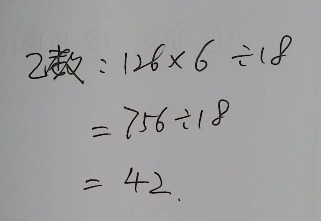 乙数：126×6÷18
=756÷18
=42.